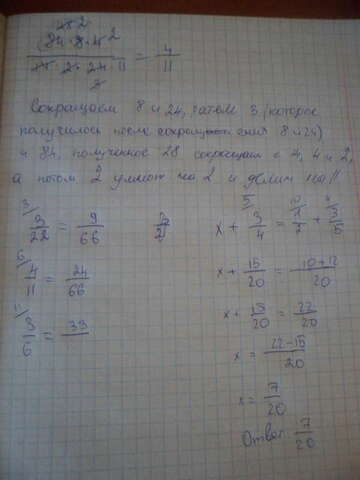 84 · 8 · 4 2
= 4/11
2 · 24 · 11
3
Сокращаем 8 и 24, затем 3 (которое
получилось после сокращения 8 и 24)
и 84, полученное 28 сокращаем с 4, 4 и 2,
а потом 2 умнож на 2 и делим на 11
3/ 3/22 = 9/66
6/ 4/11 = 24/66
11/ 3/6 = 33
x + 3/4 = 1/2 + 3/5
x + 15/20 = 10+12/20
x + 15/20 = 22/20
x = 22-15/20
x = 7/20
Ответ 7/20